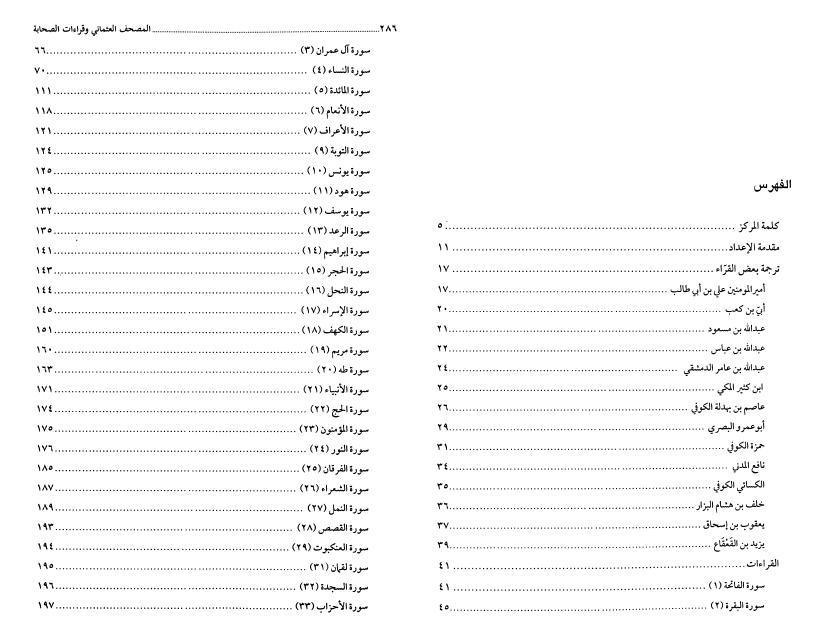 الفهرس
كلمة المركز ..... ٥
مقدمة الإعداد ..... ١١
ترجمة بعض القرّاء ..... ١٧
أميرالمومنين علي بن أبي طالب ..... ١٧
أبيّ بن كعب ..... ٢٠
عبدالله بن مسعود ..... ٢١
عبدالله بن عباس ..... ٢٢
عبدالله بن عامر الدمشقي ..... ٢٤
ابن كثير المكي ..... ٢٥
عاصم بن بهدلة الكوفي ..... ٢٦
أبوعمرو البصري ..... ٢٩
حمزة الكوفي ..... ٣١
نافع المدني ..... ٣٤
الكسائي الكوفي ..... ٣٥
خلف بن هشام البزار ..... ٣٦
يعقوب بن إسحاق ..... ٣٧
يزيد بن القَعْقَاع ..... ٣٩
القراءات ..... ٤١
سورة الفاتحة (١) ..... ٤١
سورة البقرة (٢) ..... ٤٥
٢٨٦ ..... المصحف العثماني وقراءات الصحابة
سورة آل عمران (٣) ..... ٦٦
سورة النساء (٤) ..... ٧٠
سورة المائدة (٥) ..... ١١١
سورة الأنعام (٦) ..... ١١٨
سورة الأعراف (٧) ..... ١٢١
سورة التوبة (٩) ..... ١٢٤
سورة يونس (١٠) ..... ١٢٥
سورة هود (١١) ..... ١٢٩
سورة يوسف (١٢) ..... ١٣٢
سورة الرعد (١٣) ..... ١٣٥
سورة إبراهيم (١٤) ..... ١٤١
سورة الحجر (١٥) ..... ١٤٣
سورة النحل (١٦) ..... ١٤٤
سورة الإسراء (١٧) ..... ١٤٥
سورة الكهف (١٨) ..... ١٥١
سورة مريم (١٩) ..... ١٦٠
سورة طه (٢٠) ..... ١٦٣
سورة الأنبياء (٢١) ..... ١٧١
سورة الحج (٢٢) ..... ١٧٤
سورة المؤمنون (٢٣) ..... ١٧٥
سورة النور (٢٤) ..... ١٧٦
سورة الفرقان (٢٥) ..... ١٨٥
سورة الشعراء (٢٦) ..... ١٨٧
سورة النمل (٢٧) ..... ١٨٩
سورة القصص (٢٨) ..... ١٩٣
سورة العنكبوت (٢٩) ..... ١٩٤
سورة لقمان (٣١) ..... ١٩٥
سورة السجدة (٣٢) ..... ١٩٦
سورة الأحزاب (٣٣) ..... ١٩٧